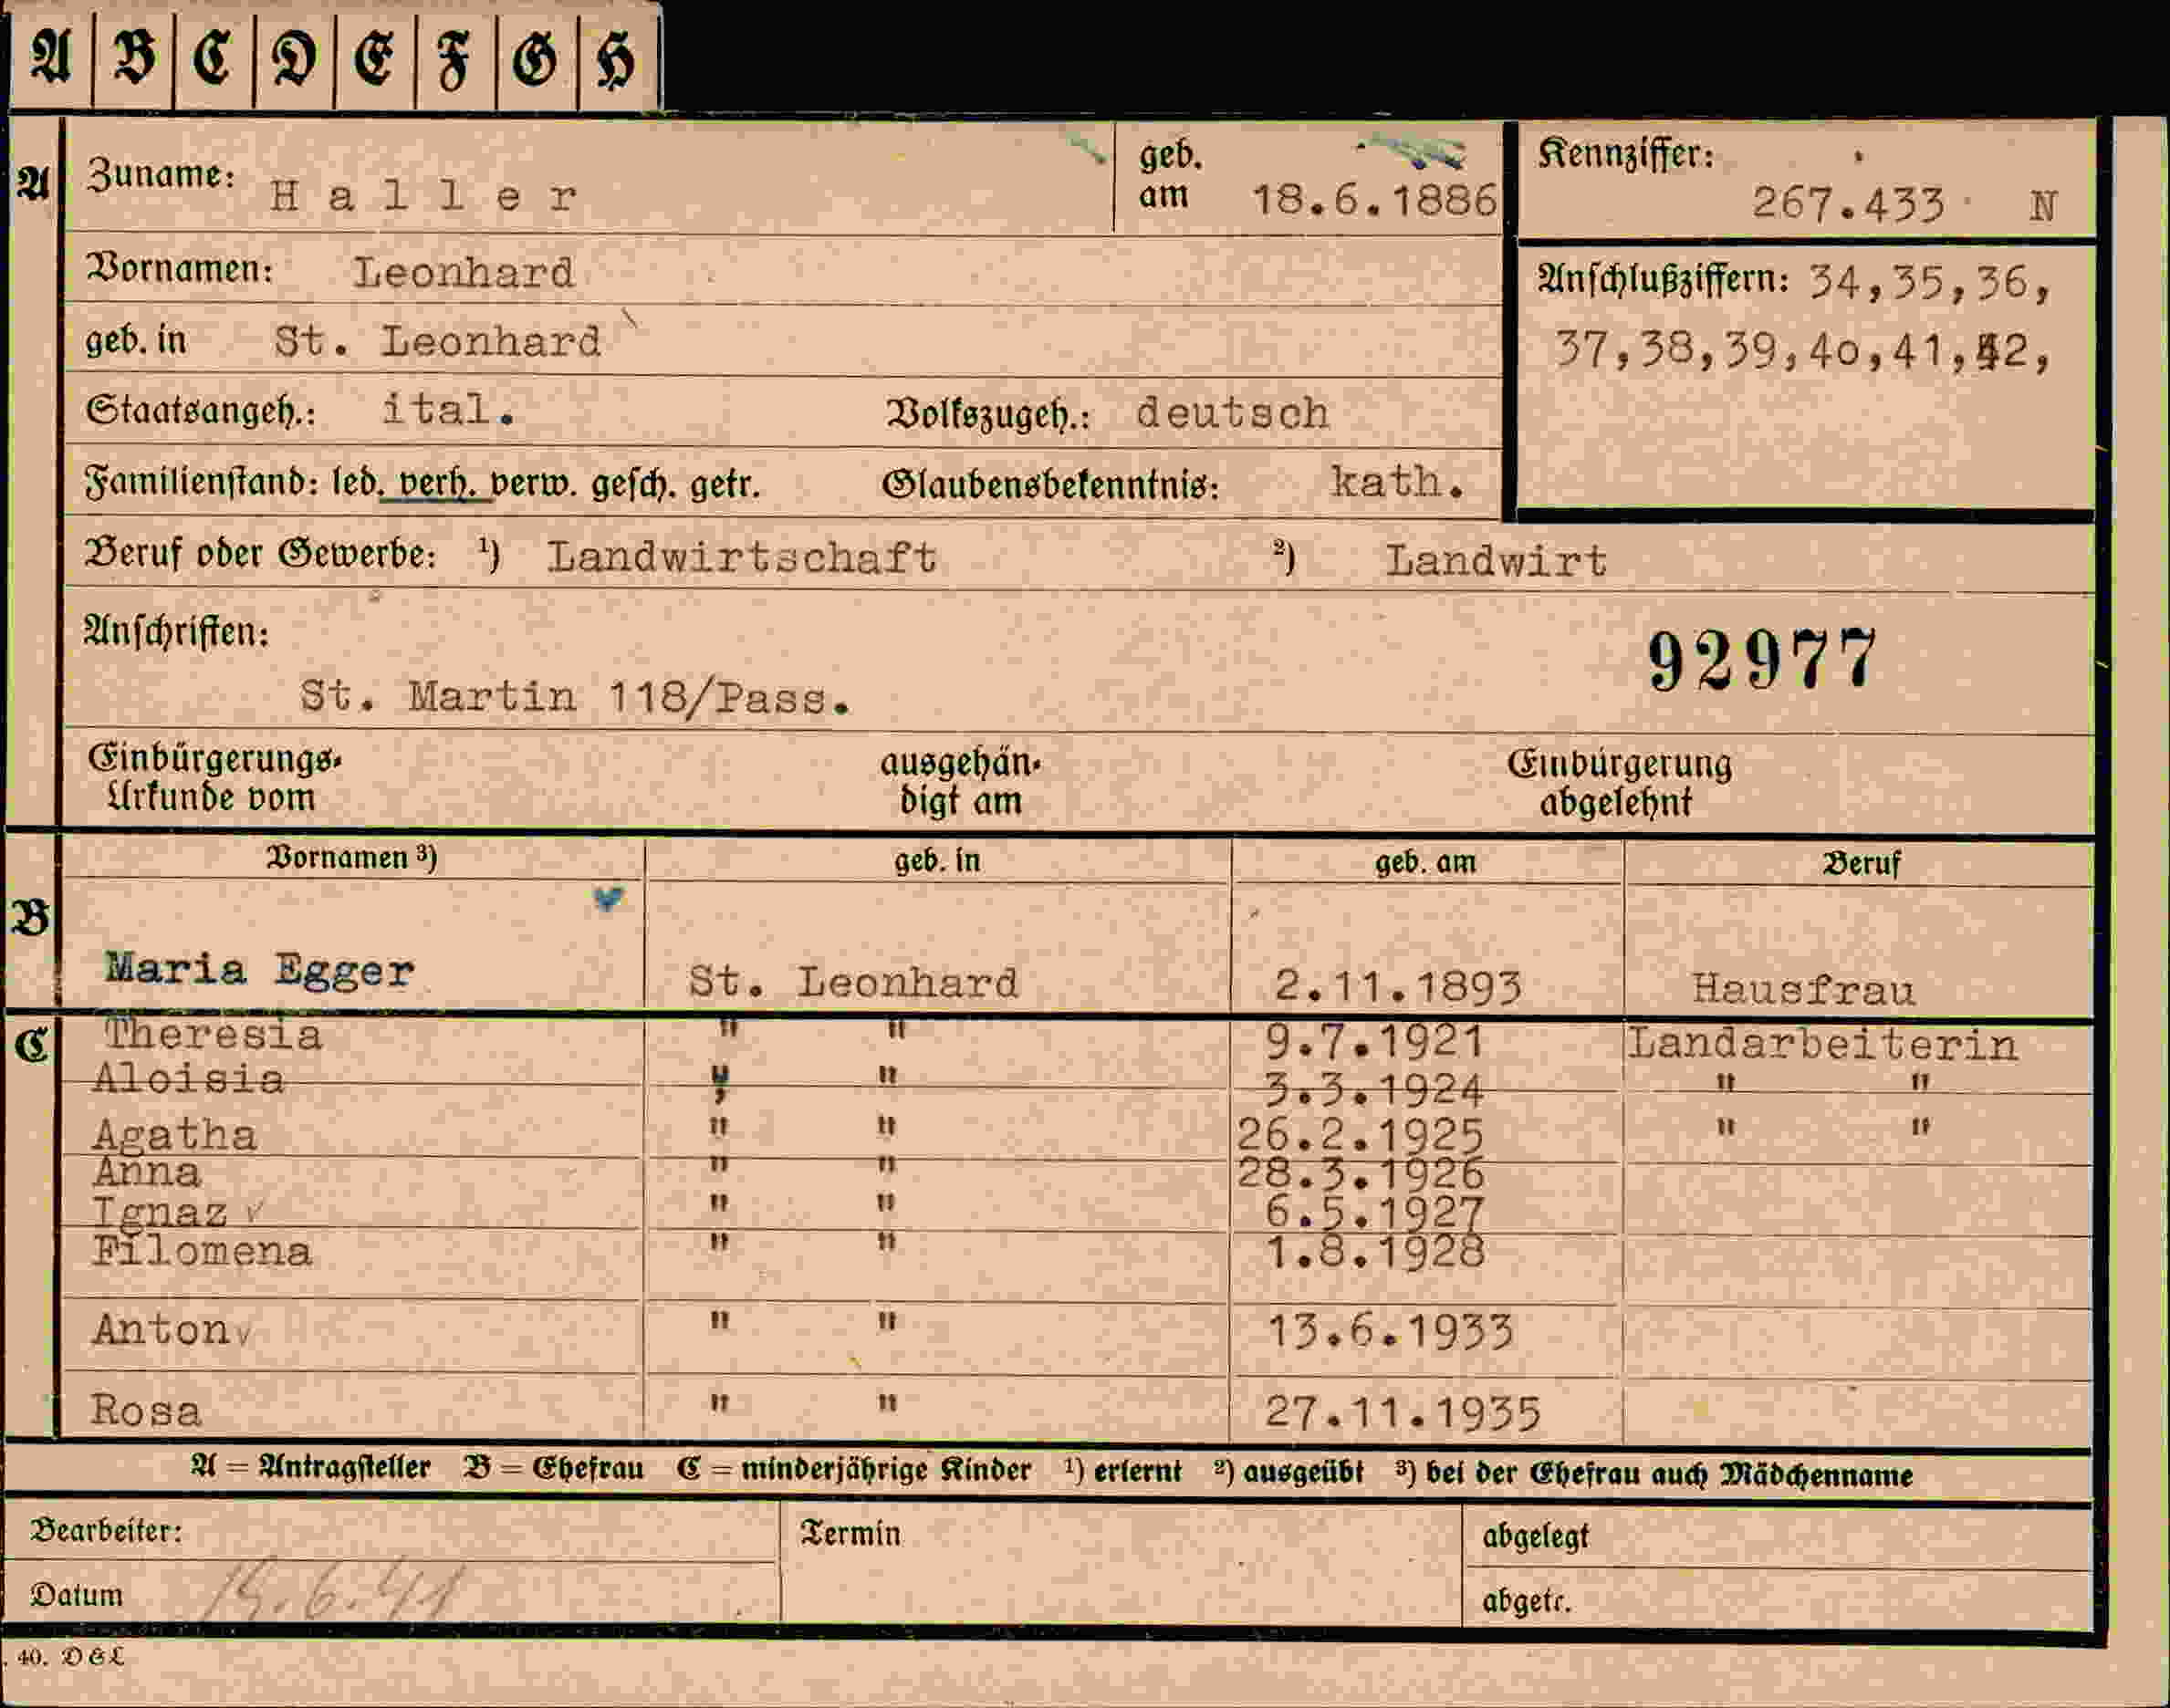 A B C D E F G H
A Zuname: Haller geb. am 18.6.1886 Kennziffer: 267.433 N
Vornamen: Leonhard Anschlußziffern: 34,35,36,
geb. in St. Leonhard 37,38,39,40,41,42,
Staatsangeh.: ital. Volkszugeh.: deutsch
Familienstand: led. verh. verw. gesch. getr. Glaubensbekenntnis: kath.
Beruf oder Gewerbe: ¹) Landwirtschaft ²) Landwirt
Anschriften: 92977
St. Martin 118/Pass.
Einbürgerungs- ausgehän- Einbürgerung
Urkunde vom digt am abgelehnt
Vornamen ³) geb. in geb. am Beruf
B Maria Egger St. Leonhard 2.11.1893 Hausfrau
C Theresia " " 9.7.1921 Landarbeiterin
Aloisia " " 3.3.1924 " "
Agatha " " 26.2.1925 " "
Anna " " 28.3.1926
Ignaz " " 6.5.1927
Filomena " " 1.8.1928
Anton " " 13.6.1933
Rosa " " 27.11.1935
A = Antragsteller B = Ehefrau C = minderjährige Kinder ¹) erlernt ²) ausgeübt ³) bei der Ehefrau auch Mädchenname
Bearbeiter: Termin abgelegt
Datum abgetr.
. 40. D&L